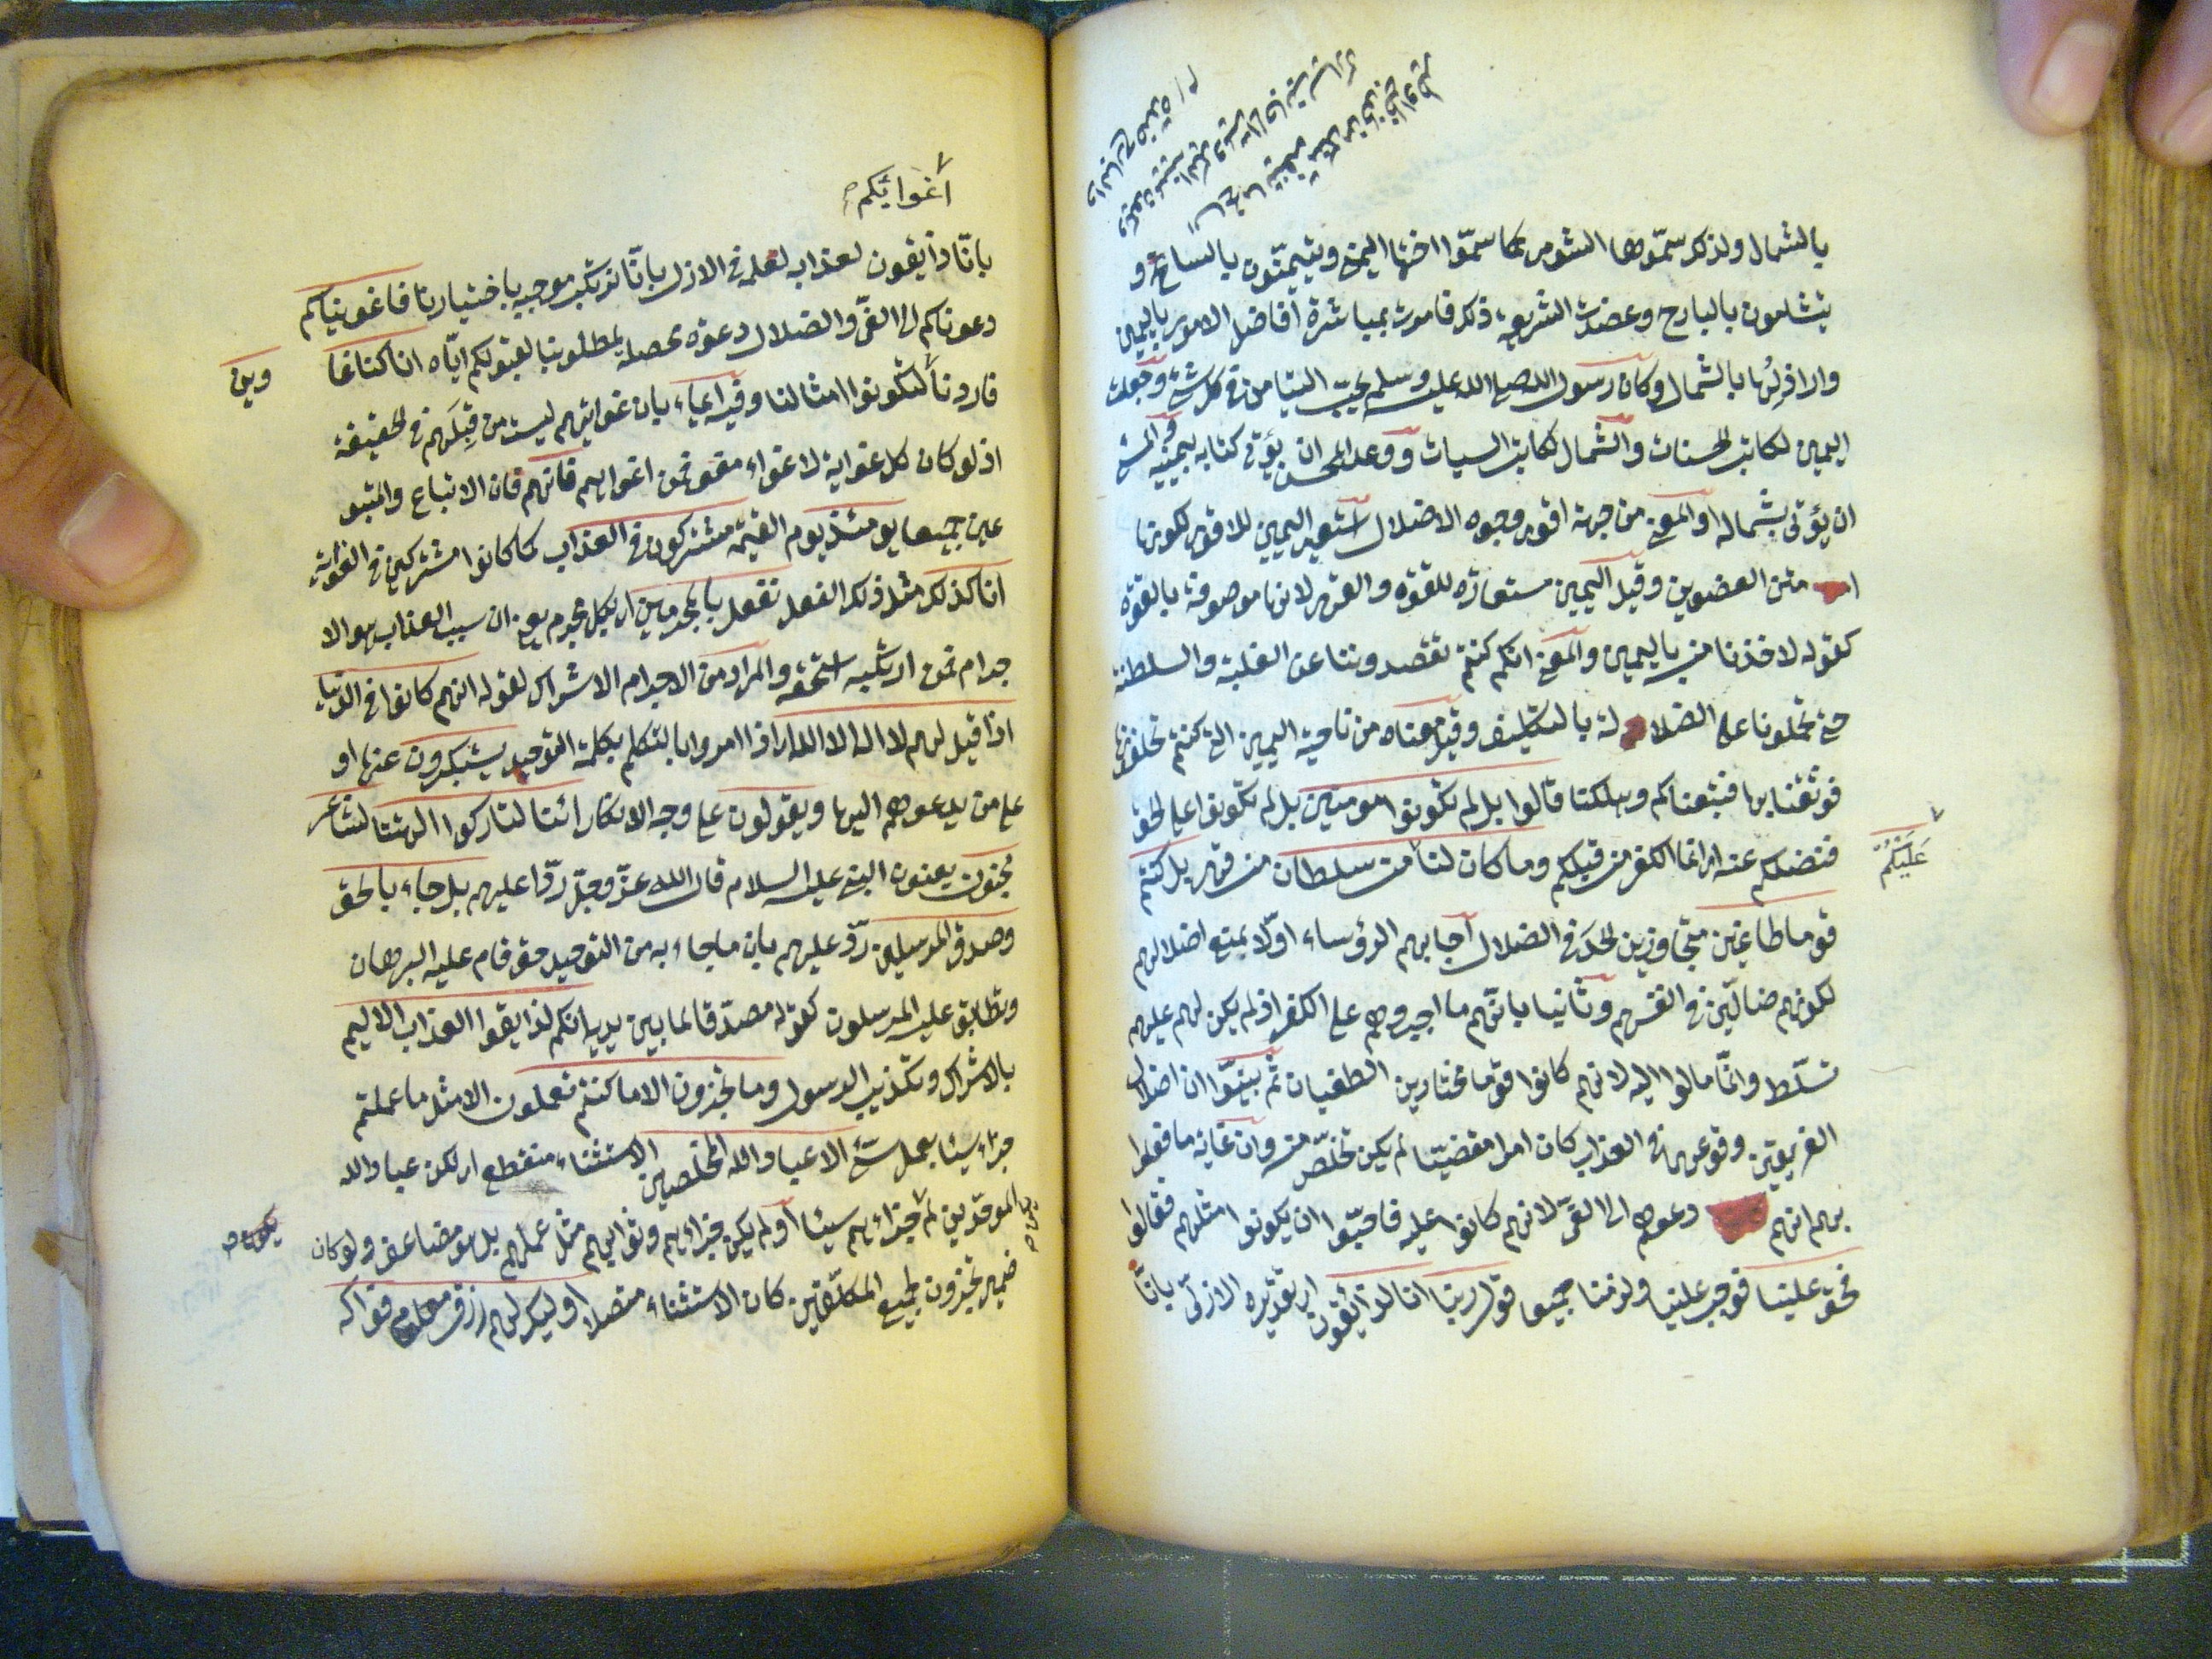 بالشمال ولذلك سمّوها الشومى كما سمّوا اختها اليمنى ويتيمّنون بالسانح و
يتشاءمون بالبارح وعضدت الشريعة ذلك فامرت بمباشرة افاضل الامور باليمين
واراذلها بالشمال وكان رسول الله صلى الله عليه وسلم يحبّ التيامن في كل شئ وجعلت
اليمين لكاتب الحسنات والشمال لكاتب السيات ووعد المحسن ان يؤتى كتابه بيمينه والمسئ
ان يؤتى بشماله او المعنى من جهة اقوى وجوه الاضلال استعير اليمين للاقوى لكونها
متن العضوين وقيل اليمين مستعارة للقوة والقهر لانها موصوفة بالقوة
كقوله لاخذنا منه باليمين والمعنى انكم كنتم تقصدوننا عن الغلبة والسلطنة
حتى تحملونا على الضلالة بالتكليف وقيل معناه من ناحية اليمين التي كنتم تحلفون بها
فوثقنا بها فتبعناكم وهلكنا قالوا بل لم تكونوا مومنين بل لم تكونوا على الحق
فنضلكم عنه اى انما الكفر من قبلكم وما كان لنا من سلطان من قهر بل كنتم
عَلَيْكُمْ
قوما طاغين متجاوزين الحد في الضلال اجابهم الرؤساء اوّلا بمنع اضلالهم
لكونهم ضالّين في انفسهم وثانيا بانّهم ما اجبروهم على الكفر اذ لم يكن لهم عليهم
تسلّط وانّما مالوا اليه لانهم كانوا قوما مختارين الطغيان ثم بيّنوا ان اضلال
الفريقين ووقوعهم في العذاب كان امرا مقضيّا لم يكن تخلّص منه وان غاية ما فعلوا
بهم انهم دعوهم الى الغىّ لانهم كانوا عليه فاحبّوا ان يكونوا مثلهم فقالوا
فحق علينا فوجب علينا ولزمنا جميعا قول ربنا انا لذائقون اى تقديره الازلىّ بانّا
اغوائكم
بانّا ذايقون لعذابه لعلمه في الازل بانّا نرتكب موجبه باختيارينا فاغويناكم
دعوناكم الى الغىّ والضلال دعوة محصلة لمطلوبنا لقبولكم ايّاه انا كنا غا
وين
فاردنا لتكونوا امثالنا وفيه ايماء بان غوايتهم ليست من قبلهم في الحقيقة
اذ لو كان كل غواية لاغواء مغو فمن اغواهم فانهم فان الاتباع والمتبو
عين جميعا يومئذ يوم القيمة مشتركون في العذاب كما كانوا مشتركين في الغواية
انا كذلك مثل ذلك الفعل نفعل بالمجرمين اى بكل مجرم يعنى ان سبب العذاب هو الا
جرام فمن ارتكبه استحقه والمراد من الاجرام الاشراك لقوله انهم كانوا في الدنيا
اذا قيل لهم لا اله الا الله اى اذا امروا بالتكلم بكلمة التوحيد يستكبرون عنها او
على من يدعوهم اليها ويقولون على وجه الانكار ائنا لتاركوا الهتنا لشاعر
مجنون يعنون النبي عليه السلام قال الله عزّ وجلّ ردّا عليهم بل جاء بالحق
وصدق المرسلين ردّ عليهم بان ما جاء به من التوحيد حق قام عليه البرهان
وتطابق عليه المرسلون كقوله مصدّقا لما بين يديه انكم لذايقوا العذاب الاليم
بالاشراك وتكذيب الرسول وما تجزون الا ما كنتم تعملون الا مثل ما عملتم
جزاء سيئا بعمل سئ الا عباد الله المخلصين الاستثناء منقطع اى لكن عباد الله
الموحّدين لم جزاءهم سيئا او لم يكن جزاءهم وثوابهم مثل عملهم بل هو مضاعف ولو كان
ضمير تجزون لجميع المكلّفين كان الاستثناء متصلا اوليك لهم رزق معلوم فواكه